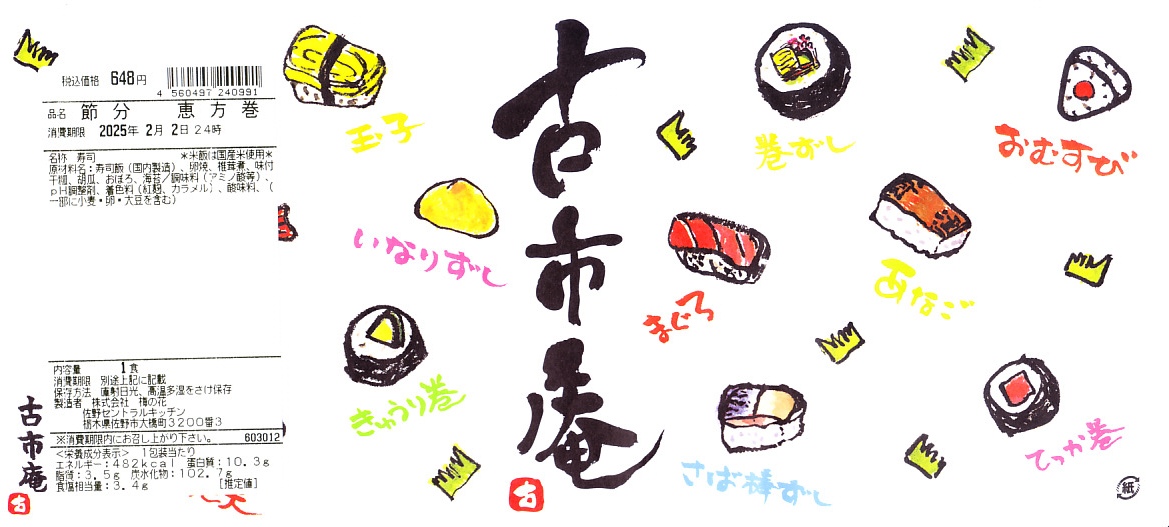 税込価格 648円
4 560497 240991
品名 節分 恵方巻
消費期限 2025年 2月 2日 24時
名称 寿司 *米飯は国産米使用*
原材料名：寿司飯（国内製造）、卵焼、椎茸煮、味付
干瓢、胡瓜、おぼろ、海苔／調味料（アミノ酸等）、
pH調整剤、着色料（紅麹、カラメル）、酸味料、（
一部に小麦・卵・大豆を含む）
内容量 1食
消費期限 別途上記に記載
保存方法 直射日光、高温多湿をさけ保存
製造者 株式会社 梅の花
佐野セントラルキッチン
栃木県佐野市大橋町3200番3
※消費期限内にお召し上がり下さい。 603012
<栄養成分表示> 1包装当たり
エネルギー：482kcal 蛋白質：10.3g
脂質：3.5g 炭水化物：102.7g
食塩相当量：3.4g [推定値]
古市庵
古
玉子
いなりずし
きゅうり巻
古市庵
古
巻ずし
おむすび
まぐろ
あなご
さば棒ずし
てっか巻
紙